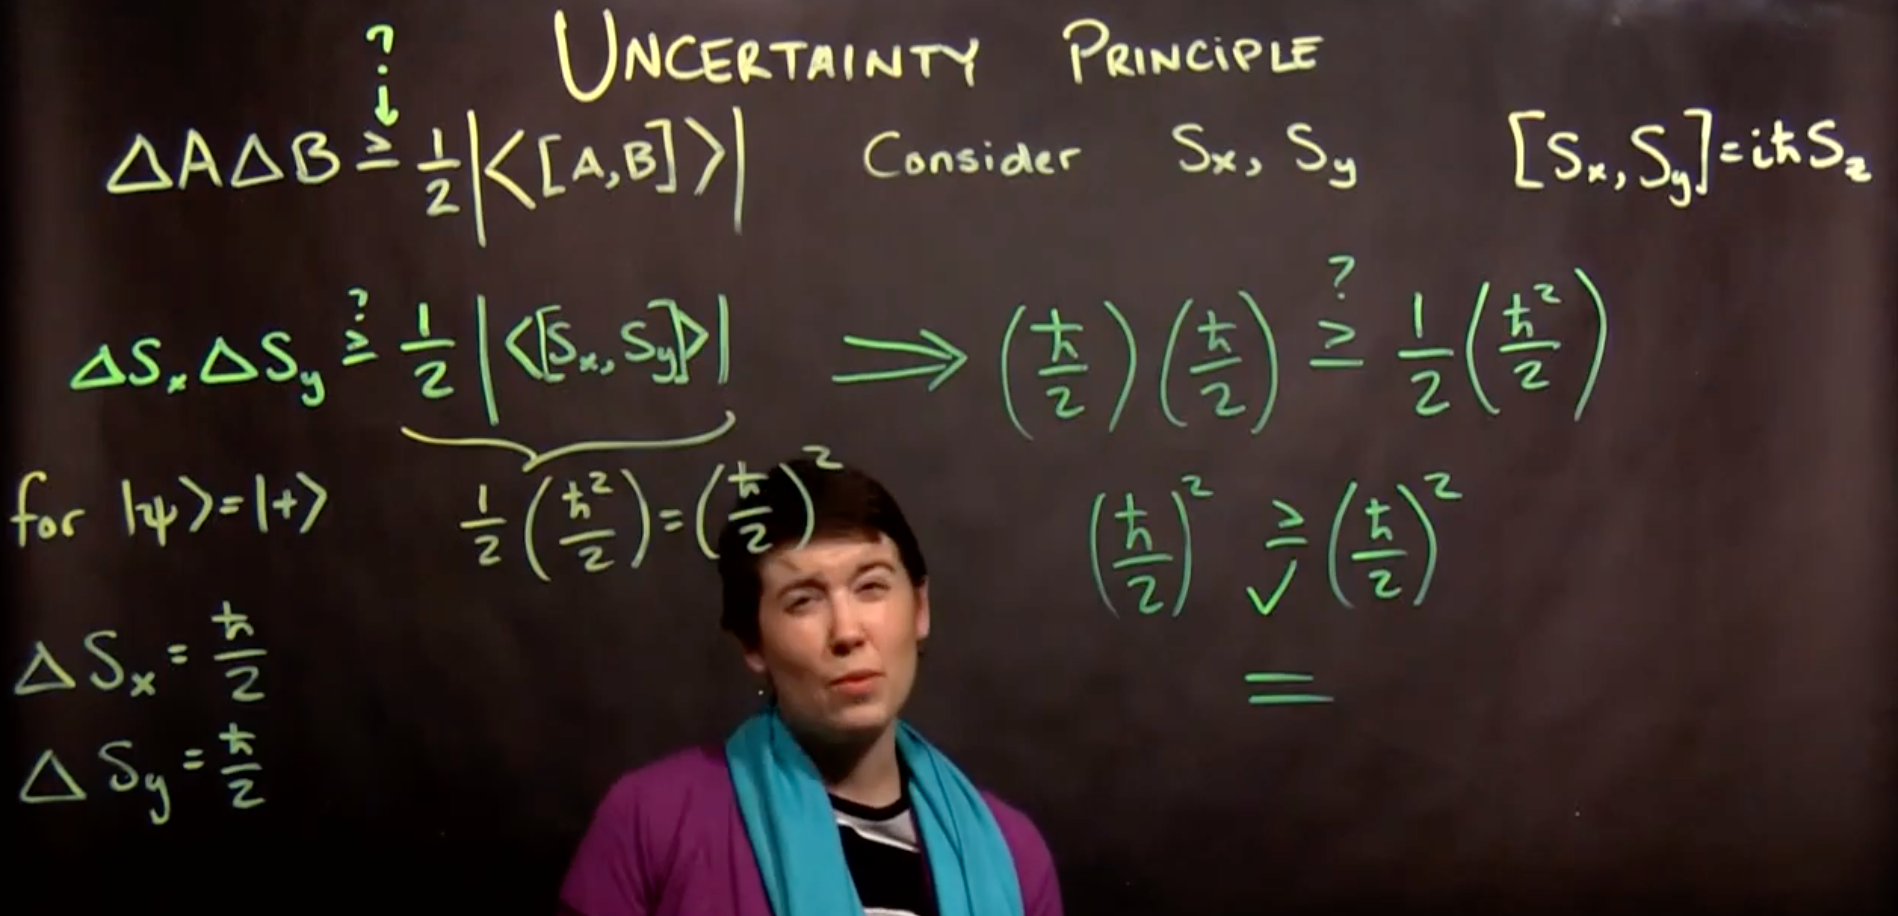 UNCERTAINTY PRINCIPLE
?
ΔAΔB ≥ 1/2 |<[A,B]>|
Consider Sx, Sy
[Sx, Sy] = iħSz
ΔSxΔSy ≥? 1/2 |<[Sx, Sy]>|
⟹ (ħ/2)(ħ/2) ≥? 1/2 (ħ²/2)
for |ψ> = |+>
1/2 (ħ²/2) = (ħ/2)²
(ħ/2)² ≥ ✓ (ħ/2)²
=
ΔSx = ħ/2
ΔSy = ħ/2